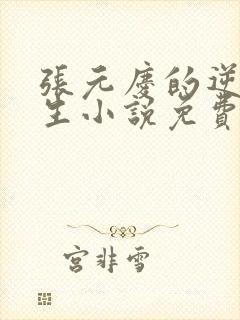 張元慶的逆
生小說免費
宮非雪